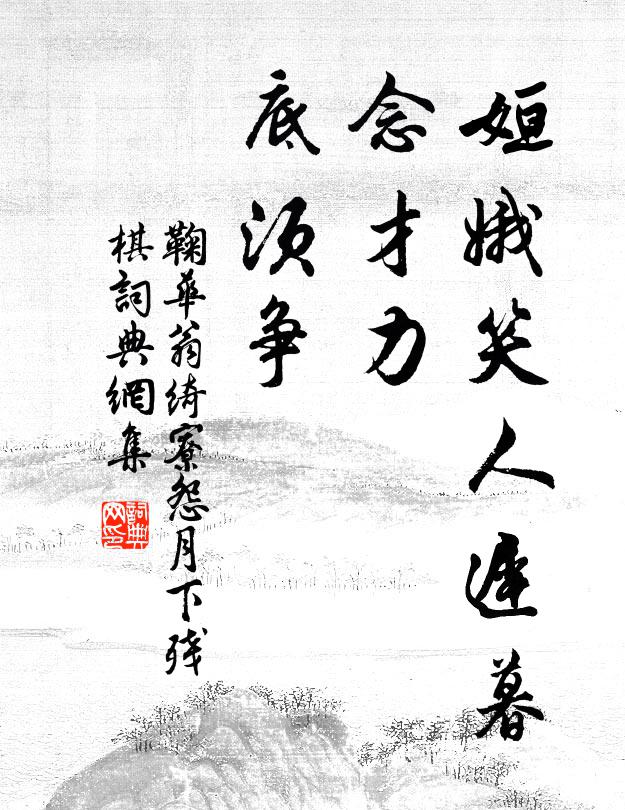 姮娥笑人遲暮
念才力
底須争
鞠華翁綺寮怨月下残
棋詞典網集
詞典网印